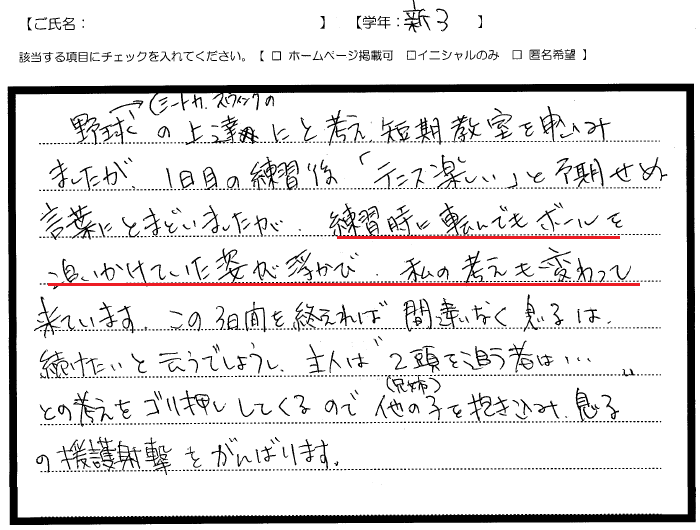 【ご氏名： 】 【学年：新3 】
該当する項目にチェックを入れてください。【 □ ホームページ掲載可 □イニシャルのみ □ 匿名希望 】
(ミート力、スウィングの
野球の上達にと考え短期教室を申込み
ましたが、1日目の練習後「テニス楽しい」と予期せぬ
言葉にとまどいましたが、練習時に転んでもボールを
追いかけていた姿が浮かび、私の考えも変わって
来ています。この3日間を終えれば間違いなく息子は、
続けたいと云うでしょうし、主人は〝2頭を追う者は…〟
との考えをゴリ押ししてくるので他の子(兄姉)を抱き込み、息子
の援護射撃をがんばります。